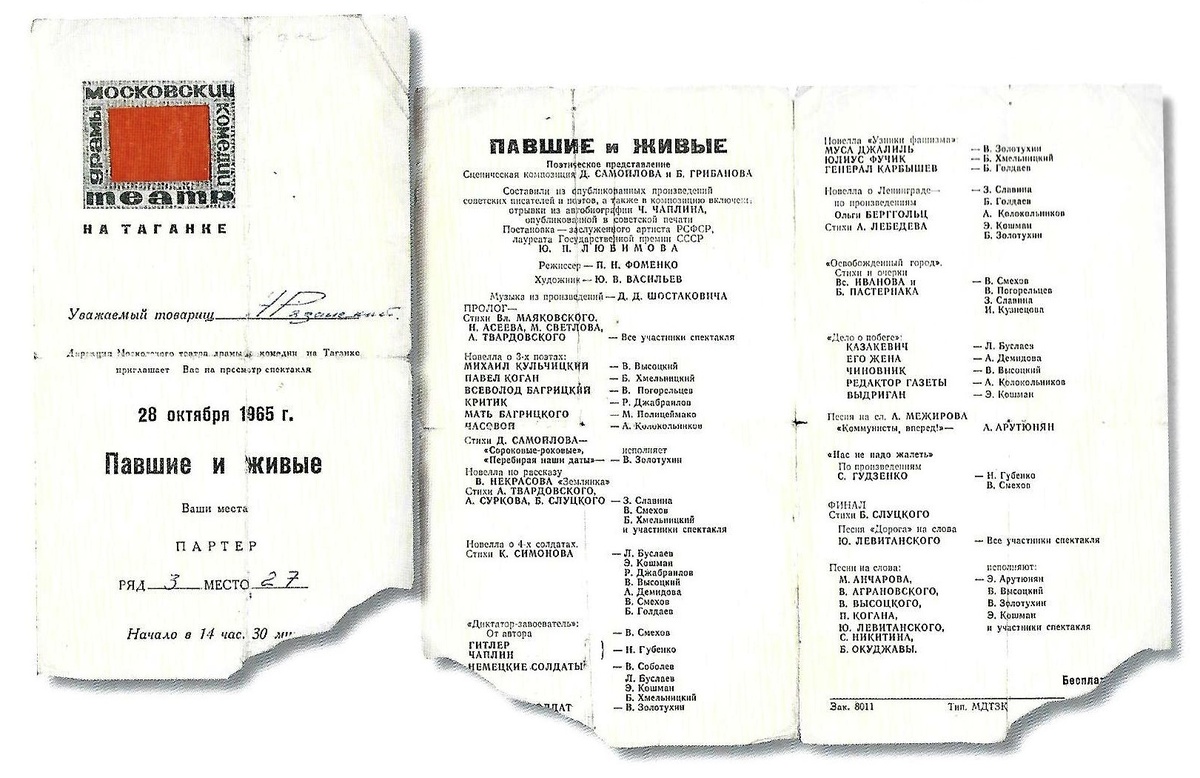 МОСКОВСКИЙ
драмы
комедии
театр
НА ТАГАНКЕ
Уважаемый товарищ
Дирекция Московского театра драмы и комедии на Таганке
приглашает Вас на просмотр спектакля
28 октября 1965 г.
Павшие и живые
Ваши места
ПАРТЕР
РЯД 3 МЕСТО 27
Начало в 14 час. 30
ПАВШИЕ и ЖИВЫЕ
Поэтическое представление
Сценическая композиция Д. САМОЙЛОВА и Б. ГРИБАНОВА
Составили из опубликованных произведений
советских писателей и поэтов, а также в композицию включены
отрывки из автобиографии Ч. ЧАПЛИНА,
опубликованной в советской печати
Постановка — заслуженного артиста РСФСР,
лауреата Государственной премии СССР
Ю. П. ЛЮБИМОВА
Режиссер — П. Н. ФОМЕНКО
Художник — Ю. В. ВАСИЛЬЕВ
Музыка из произведений — Д. Д. ШОСТАКОВИЧА
ПРОЛОГ—
Стихи Вл. МАЯКОВСКОГО,
Н. АСЕЕВА, М. СВЕТЛОВА,
А. ТВАРДОВСКОГО — Все участники спектакля
Новелла о 3-х поэтах:
МИХАИЛ КУЛЬЧИЦКИЙ — В. Высоцкий
ПАВЕЛ КОГАН — Б. Хмельницкий
ВСЕВОЛОД БАГРИЦКИЙ — В. Погорельцев
КРИТИК — Р. Джабраилов
МАТЬ БАГРИЦКОГО — М. Полицеймако
ЧАСОВОЙ — А. Колокольников
Стихи Д. САМОЙЛОВА—
«Сороковые-роковые», исполняет
«Перебирая наши даты»— — В. Золотухин
Новелла по рассказу
В. НЕКРАСОВА «Землянка»
Стихи А. ТВАРДОВСКОГО,
А. СУРКОВА, Б. СЛУЦКОГО — З. Славина
В. Смехов
Б. Хмельницкий
и участники спектакля
Новелла о 4-х солдатах.
Стихи К. СИМОНОВА — Л. Буслаев
Э. Кошман
Р. Джабраилов
В. Высоцкий
А. Демидова
В. Смехов
Б. Голдаев
«Диктатор-завоеватель»:
От автора — В. Смехов
ГИТЛЕР
ЧАПЛИН } — Н. Губенко
НЕМЕЦКИЕ СОЛДАТЫ — В. Соболев
Л. Буслаев
Э. Кошман
Б. Хмельницкий
ЛДАТ — В. Золотухин
Новелла «Узники фашизма»
МУСА ДЖАЛИЛЬ — В. Золотухин
ЮЛИУС ФУЧИК — Б. Хмельницкий
ГЕНЕРАЛ КАРБЫШЕВ — Б. Голдаев
Новелла о Ленинграде— — З. Славина
по произведениям Б. Голдаев
Ольги БЕРГГОЛЬЦ А. Колокольников
Стихи А. ЛЕБЕДЕВА Э. Кошман
Б. Золотухин
«Освобожденный город».
Стихи и очерки
Вс. ИВАНОВА и — В. Смехов
Б. ПАСТЕРНАКА В. Погорельцев
З. Славина
И. Кузнецова
«Дело о побеге»:
КАЗАКЕВИЧ — Л. Буслаев
ЕГО ЖЕНА — А. Демидова
ЧИНОВНИК — В. Высоцкий
РЕДАКТОР ГАЗЕТЫ — А. Колокольников
ВЫДРИГАН — Э. Кошман
Песня на сл. А. МЕЖИРОВА
«Коммунисты, вперед!»— А. АРУТЮНЯН
«Нас не надо жалеть»
По произведениям
С. ГУДЗЕНКО — Н. Губенко
В. Смехов
ФИНАЛ
Стихи Б. СЛУЦКОГО
Песня «Дорога» на слова
Ю. ЛЕВИТАНСКОГО — Все участники спектакля
Песни на слова: исполняют:
М. АНЧАРОВА, — Э. Арутюнян
В. АГРАНОВСКОГО, В. Высоцкий
В. ВЫСОЦКОГО, В. Золотухин
П. КОГАНА, Э. Кошман
Ю. ЛЕВИТАНСКОГО, и участники спектакля
С. НИКИТИНА,
Б. ОКУДЖАВЫ.
Беспла
Зак. 8011 Тип. МДТЗК